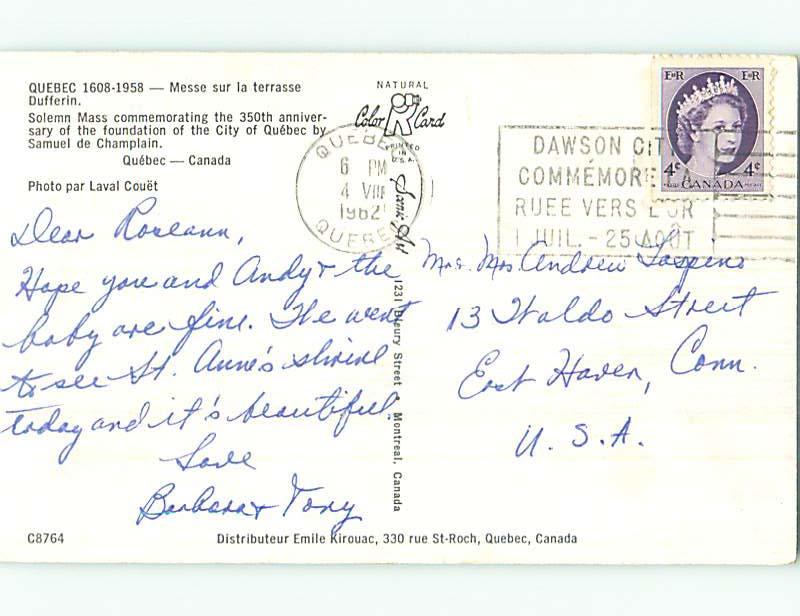 QUEBEC 1608-1958 — Messe sur la terrasse
Dufferin.
Solemn Mass commemorating the 350th anniver-
sary of the foundation of the City of Québec by
Samuel de Champlain.
Québec — Canada
Photo par Laval Couët
Dear Roseann,
Hope you and Andy & the
baby are fine. We went
to see St. Anne's shrine
today and it's beautiful.
Love
Barbara & Tony
C8764
Distributeur Emile Kirouac, 330 rue St-Roch, Quebec, Canada
NATURAL
Color R Card
PRINTED
IN
U.S.A.
Scenic Art
1231 Bleury Street Montreal, Canada
QUEBEC
6 PM
4 VIII
1962
QUEBEC
DAWSON CIT
COMMÉMORE LA
RUEE VERS L'OR
1 JUIL. - 25 AOUT
E II R E II R
4¢ 4¢
CANADA
Mr & Mrs Andrew
13 Waldo Street
East Haven, Conn.
U.S.A.